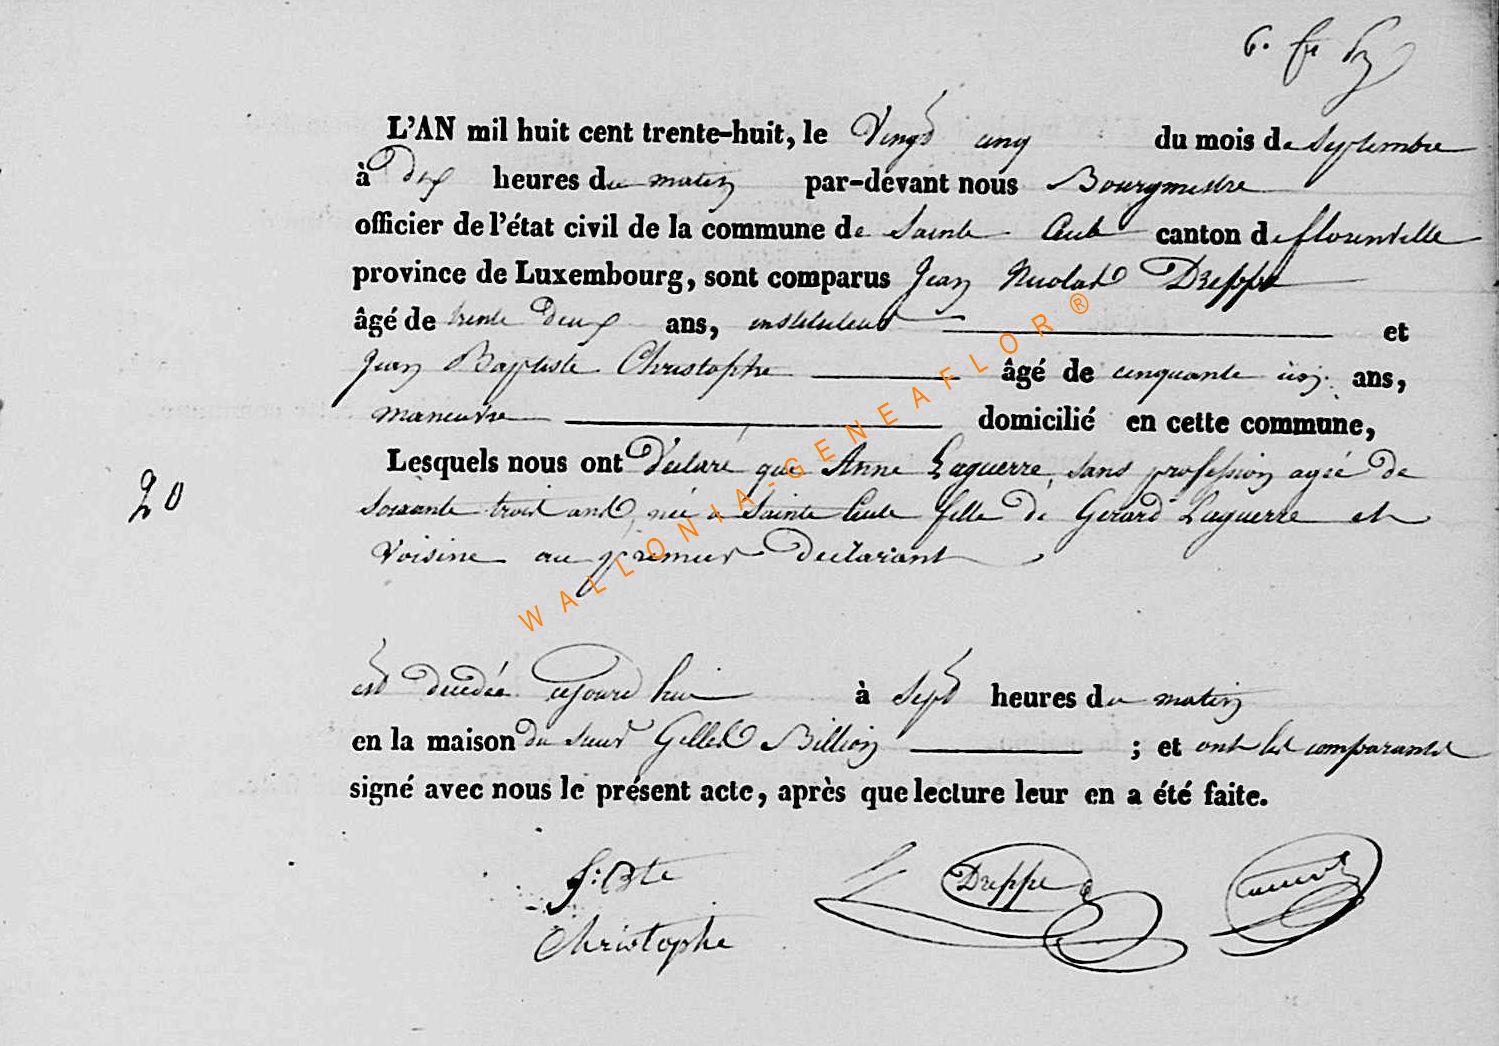 L'AN mil huit cent trente-huit, le Vingt cinq du mois de Septembre
à dix heures du matin par-devant nous Bourgmestre
officier de l'état civil de la commune de Sainte Cecile canton de florenville
province de Luxembourg, sont comparus Jean Nicolas Dreppe
âgé de trente deux ans, instituteur et
Jean Baptiste Christophe âgé de cinquante un ans,
maneuvre domicilié en cette commune,
Lesquels nous ont Déclaré que Anne Laguerre, sans profession agée de
20
soixante trois ans, née a Sainte Cecile fille de Gerard Laguerre et
voisine au premier declarant
est decedée aujourd hui à sept heures du matin
en la maison du sieur Gilles Billion ; et ont les comparants
signé avec nous le présent acte, après que lecture leur en a été faite.
J: Bte Dreppe
Christophe
WALLONIA-GENEAFLOR®